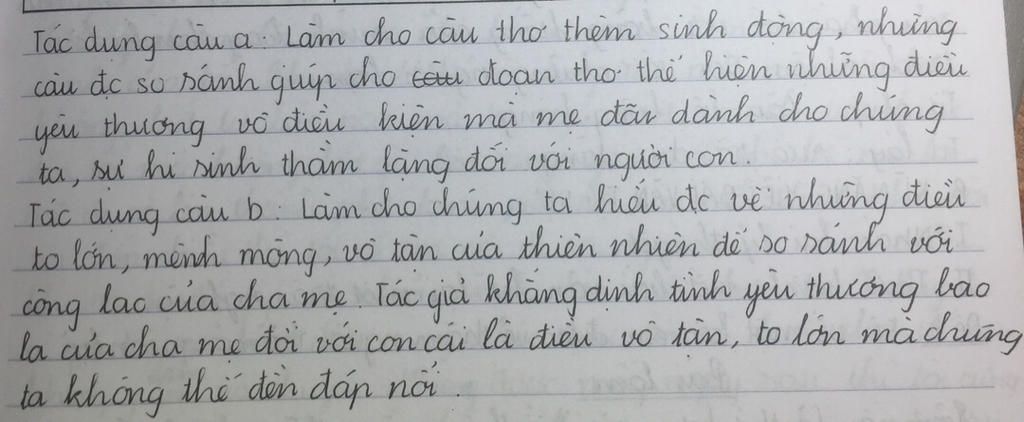 Tác dụng câu a: Làm cho câu thơ thêm sinh động, những
câu đc so sánh giúp cho câu đoạn thơ thể hiện những điều
yêu thương vô điều kiện mà mẹ đã dành cho chúng
ta, sự hi sinh thầm lặng đối với người con.
Tác dụng câu b: Làm cho chúng ta hiểu đc về những điều
to lớn, mênh mông, vô tận của thiên nhiên để so sánh với
công lao của cha mẹ. Tác giả khẳng định tình yêu thương bao
la của cha mẹ đối với con cái là điều vô tận, to lớn mà chúng
ta không thể đền đáp nổi.